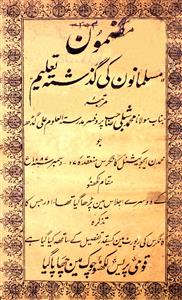 مضمون
مسلمانون کی گذشتہ تعلیم
مرتبہ
جناب مولانا محمد شبلی صاحب پروفیسر مدرسۃ العلوم علی گڈھ
جو
محمدن ایجوکیشنل کانگریس منعقدہ ۲۷ دسمبر
بمقام لکھنؤ
کے دوسرے اجلاس مین پڑھا گیا تھا اور جس کا
تذکرہ
کانگریس کی رپورٹ مین کسیقدر تفصیل کے ساتھ کیا گیا ہے
قومی پریس لکھنؤ چوک مین چھاپا گیا